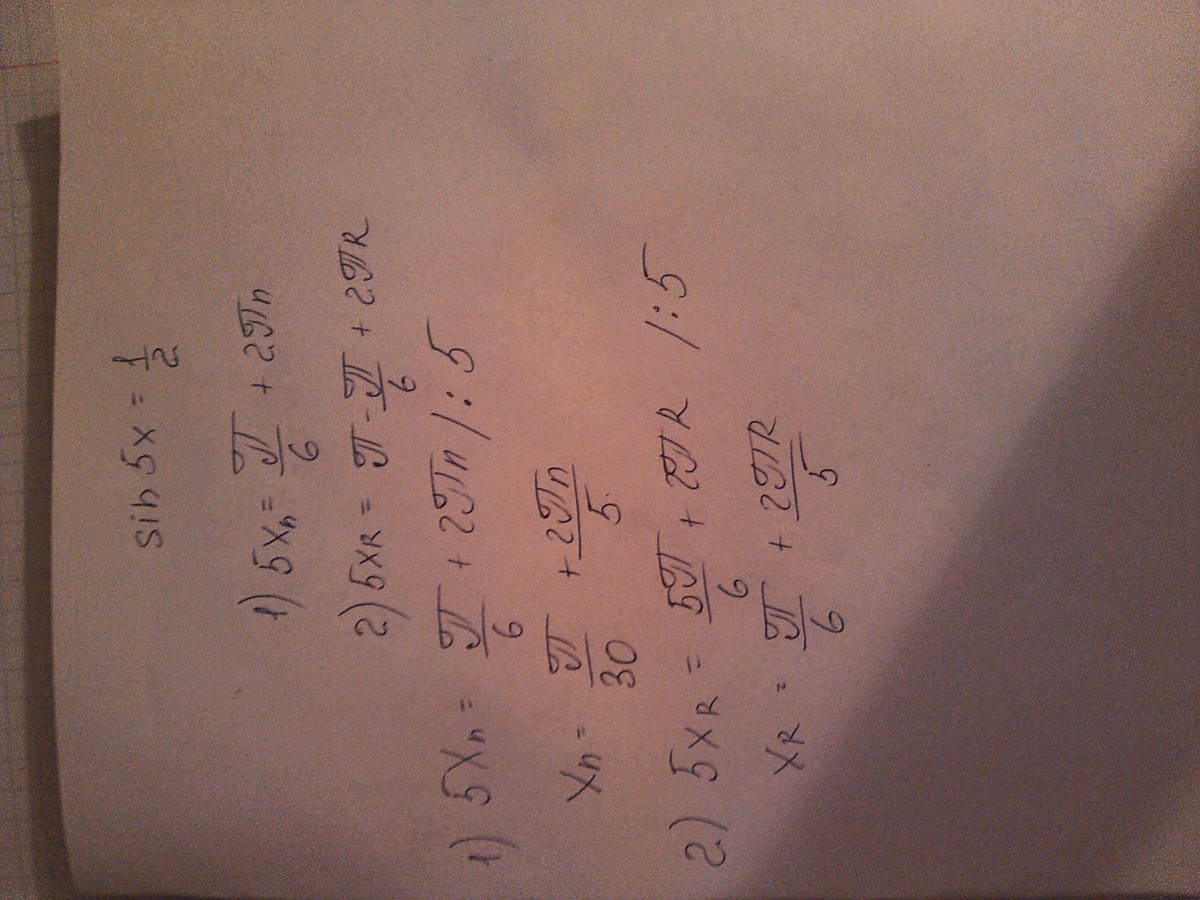 sin 5x = 1/2
1) 5xn = π/6 + 2πn
2) 5xR = π - π/6 + 2πR
1) 5xn = π/6 + 2πn /:5
xn = π/30 + 2πn/5
2) 5xR = 5π/6 + 2πR /:5
xR = π/6 + 2πR/5